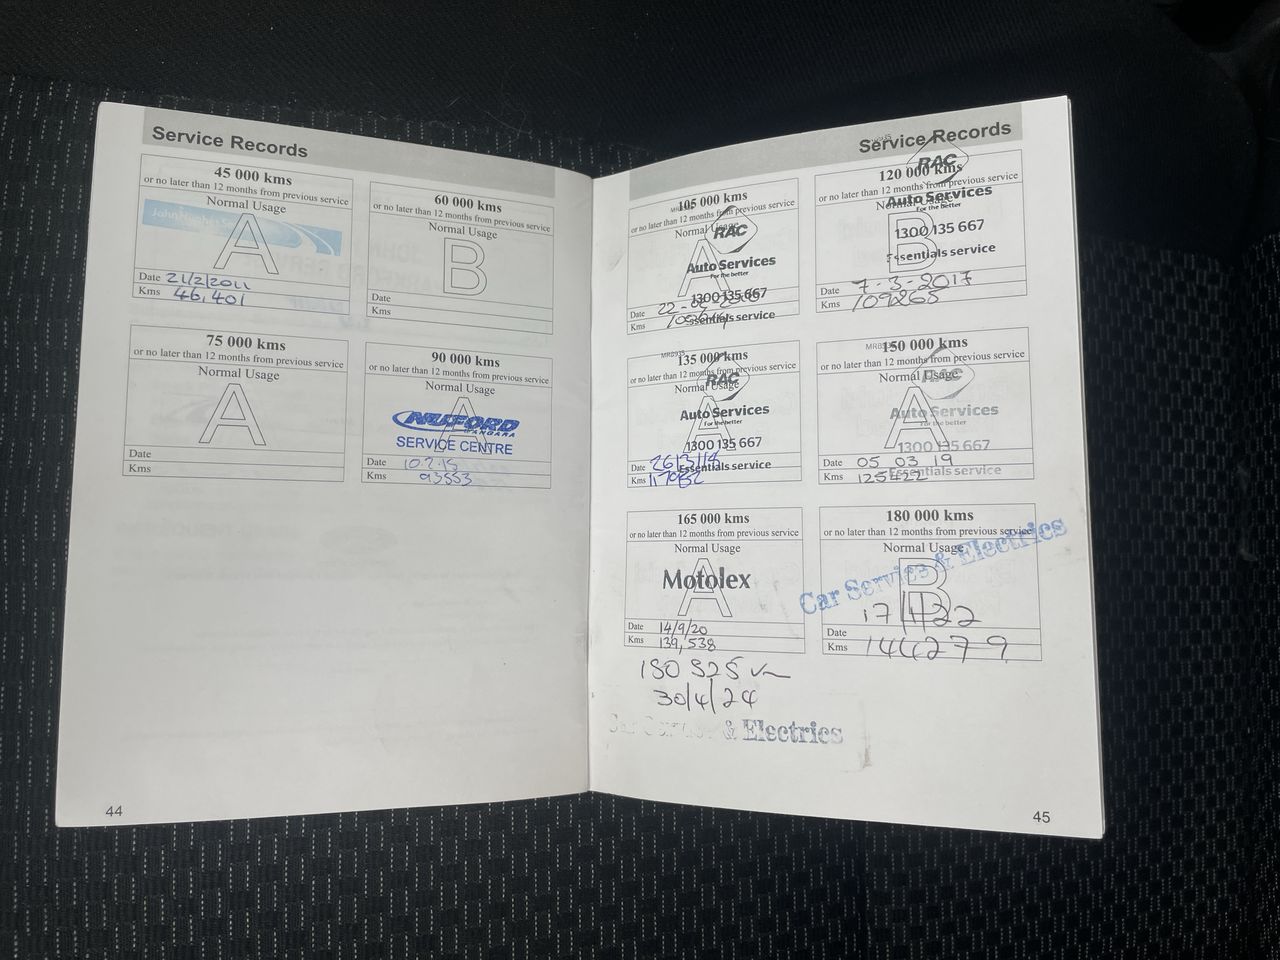 Service Records
45 000 kms
or no later than 12 months from previous service
Normal Usage
A
Date 21/2/2011
Kms 46,401
60 000 kms
or no later than 12 months from previous service
Normal Usage
B
Date
Kms
75 000 kms
or no later than 12 months from previous service
Normal Usage
A
Date
Kms
90 000 kms
or no later than 12 months from previous service
Normal Usage
A
NUFORD
WANGARA
SERVICE CENTRE
Date 10.2.15
Kms 93553
44
Service Records
105 000 kms
or no later than 12 months from previous service
Normal Usage
A
RAC
Auto Services
For the better
1300 135 667
Essentials service
Date
Kms
120 000 kms
or no later than 12 months from previous service
Normal Usage
B
RAC
Auto Services
For the better
1300 135 667
Essentials service
Date 7-3-2017
Kms 109265
135 000 kms
or no later than 12 months from previous service
Normal Usage
A
RAC
Auto Services
For the better
1300 135 667
Essentials service
Date
Kms
150 000 kms
or no later than 12 months from previous service
Normal Usage
A
RAC
Auto Services
For the better
1300 135 667
Essentials service
Date 05 03 19
Kms 125422
165 000 kms
or no later than 12 months from previous service
Normal Usage
A
Motolex
Date 14/9/20
Kms 139,538
180 000 kms
or no later than 12 months from previous service
Normal Usage
B
Car Service & Electrics
Date 17/1/22
Kms 144279
30/4/24
Car Service & Electrics
45